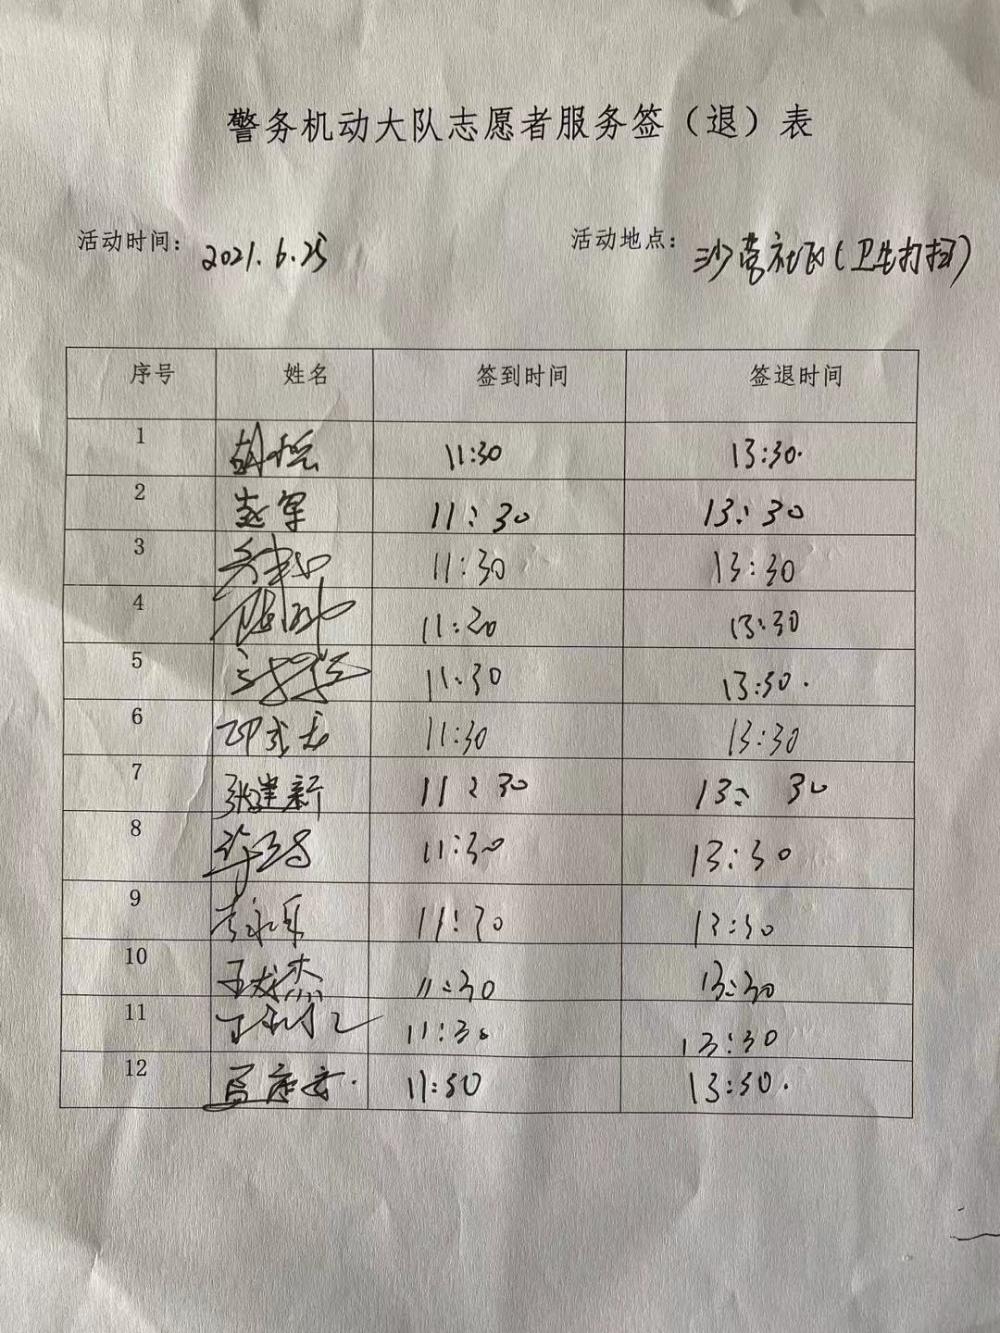 警务机动大队志愿者服务签（退）表
活动时间： 2021.6.25 活动地点： 沙营社区(卫生打扫)
序号 姓名 签到时间 签退时间
1 11:30 13:30.
2 赵军 11:30 13:30
3 11:30 13:30
4 11:30 13:30
5 11:30 13:30.
6 邓武龙 11:30 13:30
7 张建新 11:30 13:30
8 11:30 13:30
9 李永军 11:30 13:30
10 王龙杰 11:30 13:30
11 11:30 13:30
12 11:30 13:30.